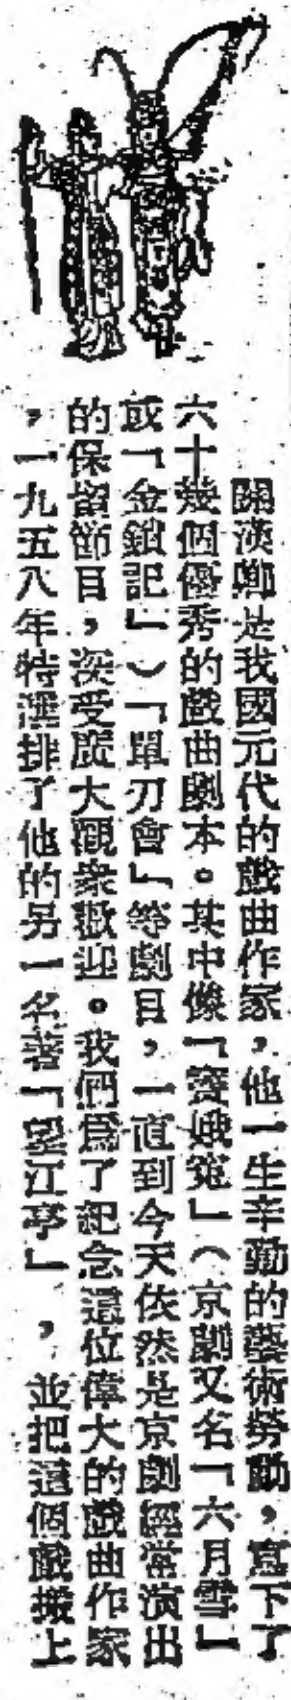 關漢卿是我國元代的戲曲作家，他一生辛勤的藝術勞動，寫下了
六十幾個優秀的戲曲劇本。其中像「竇娥冤」（京劇又名「六月雪」
或「金鎖記」）「單刀會」等劇目，一直到今天依然是京劇經常演出
的保留節目，深受廣大觀衆歡迎。我們爲了紀念這位偉大的戲曲作家
，一九五八年特選排了他的另一名著「望江亭」，並把這個戲搬上